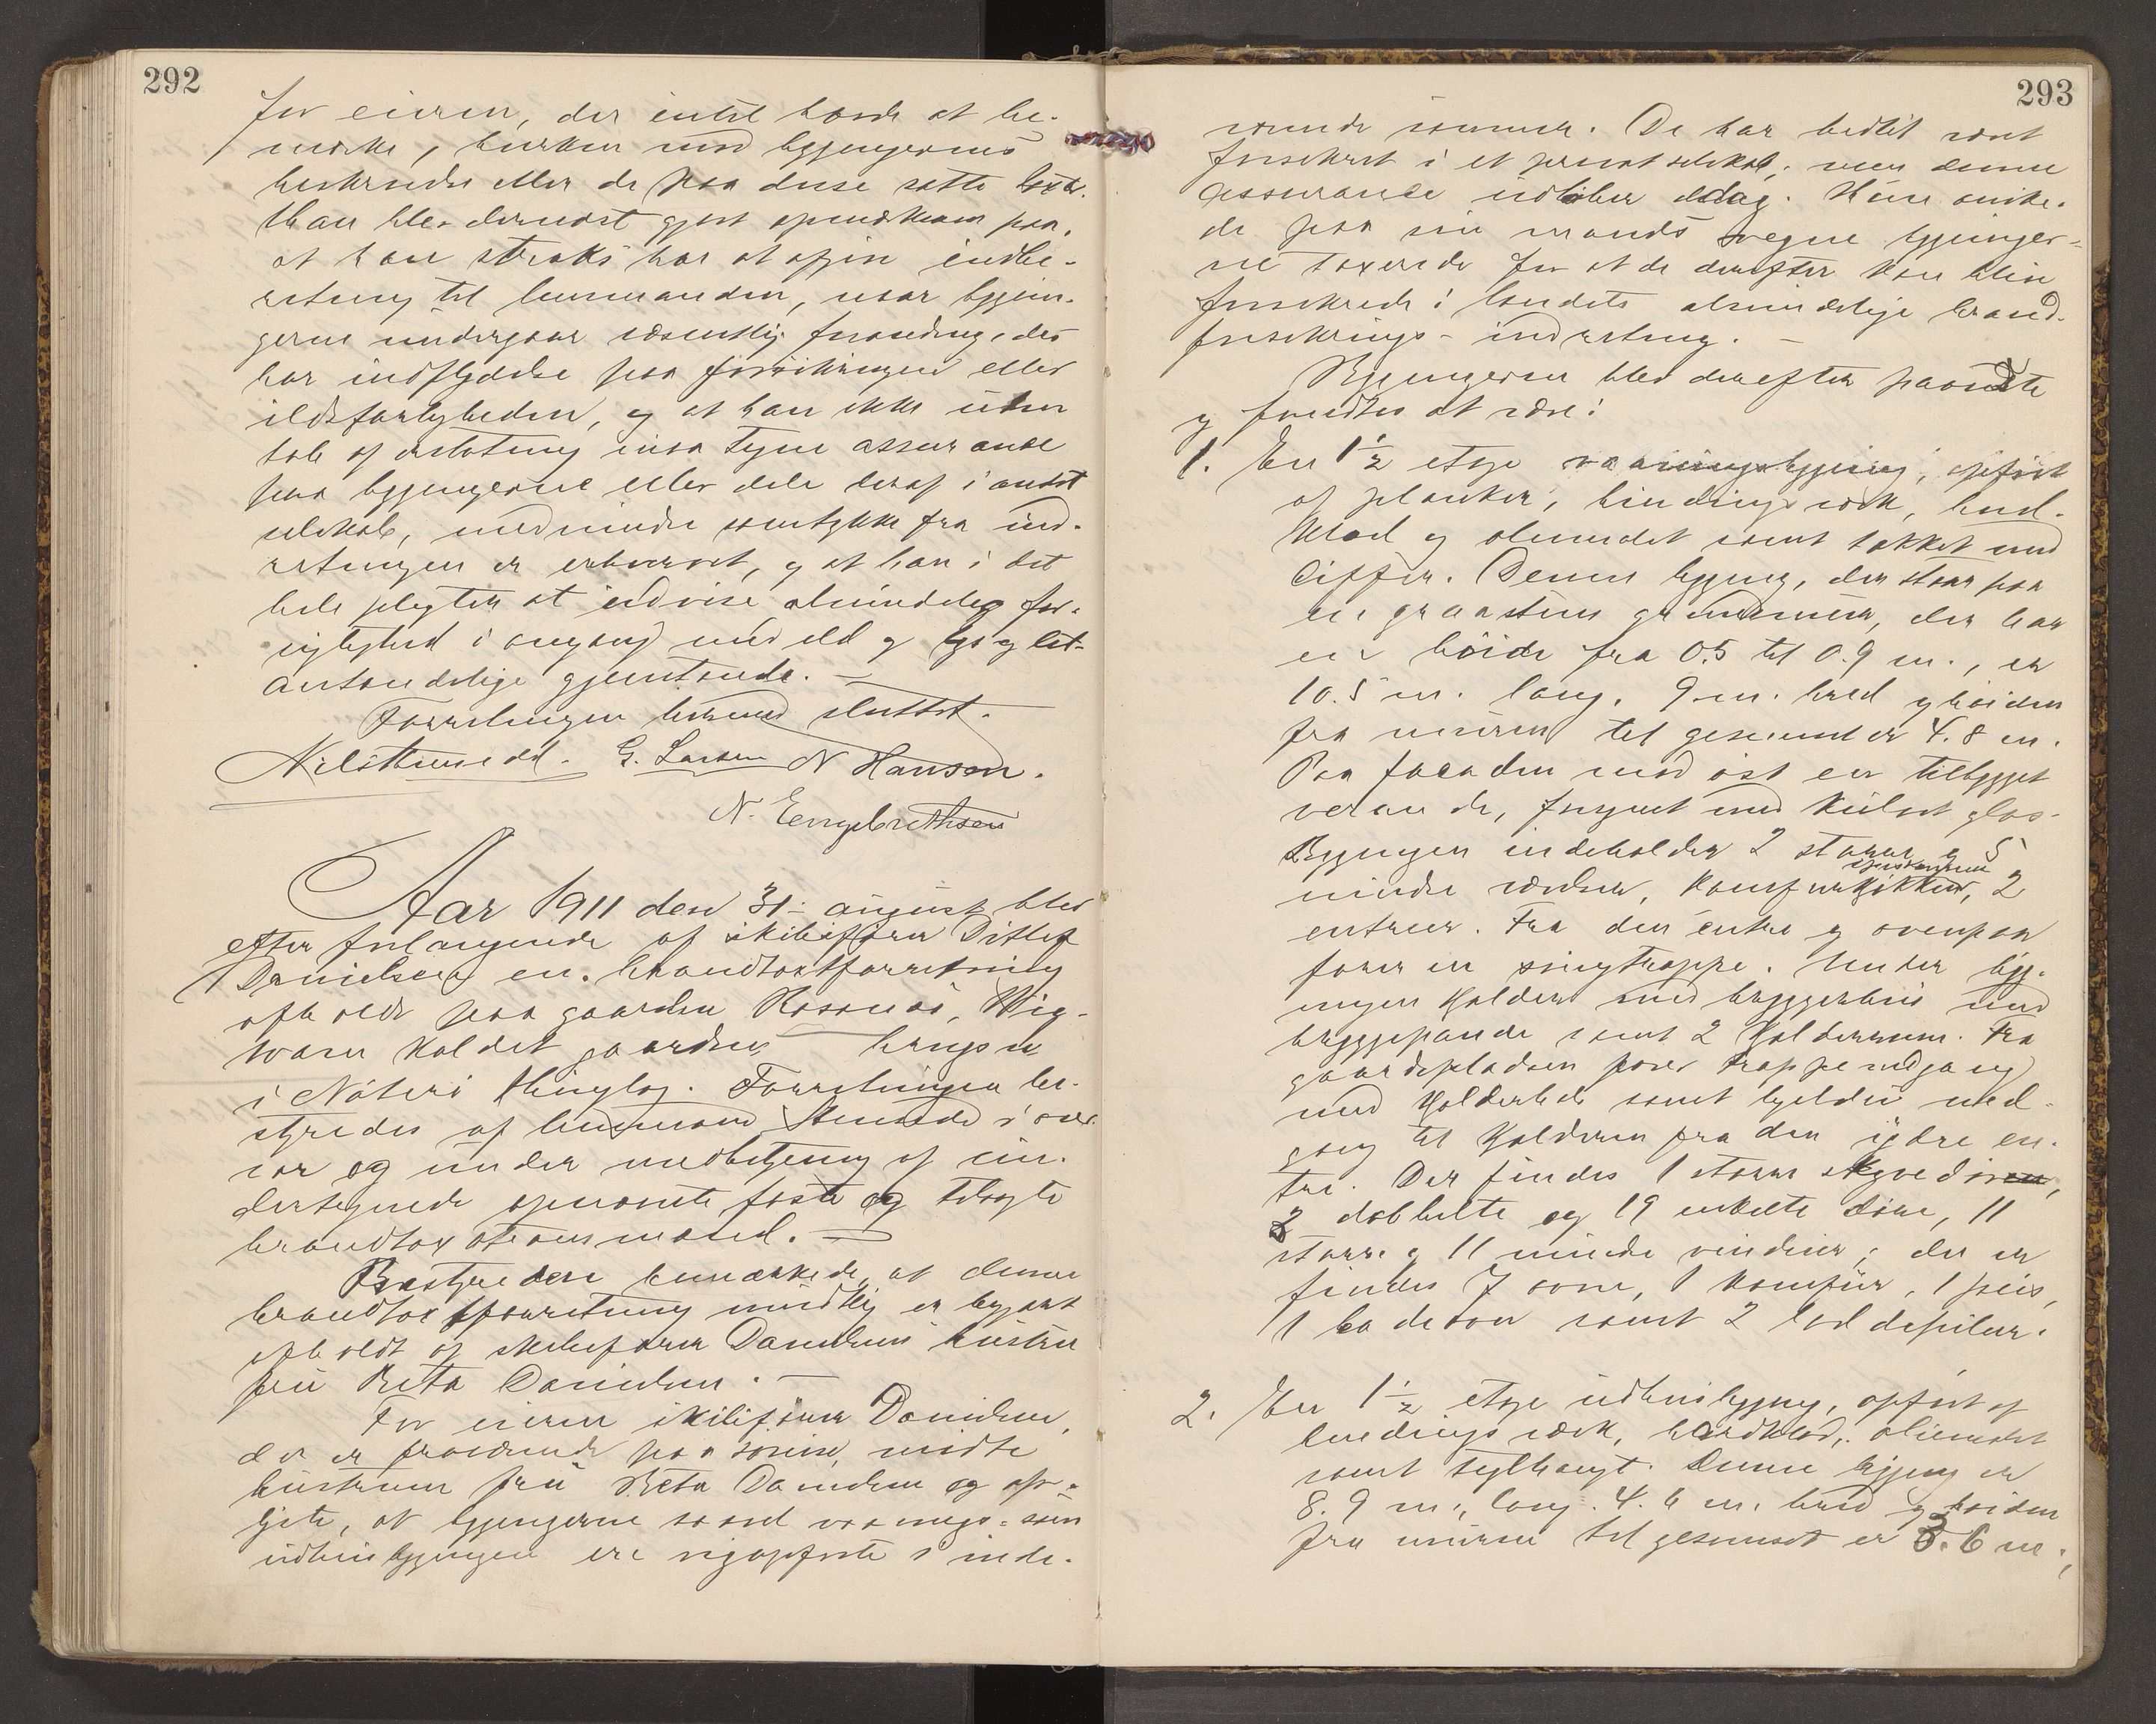 292
for eieren, der intet havde at be-
mærke, hverken mod bygningernes
beskrivelse eller de paa disse satte taxter.
Han blev dernæst gjort opmærksom paa,
at han straks har at afgive indbe-
retning til lensmanden, naar bygnin-
gerne undergaar væsentlig forandring, der
har indflydelse paa forsikringen eller
ildsfarligheden, og at han ikke uden
tab af erstatning maa tegne assurance
paa bygningerne eller dele deraf i andet
selskab, medmindre samtykke fra ind-
retningen er erhvervet, og at han i det
hele pligter at udvise almindelig for-
sigtighed i omgang med ild og lys og let-
antændelige gjenstande. —
Forretningen hermed sluttet.
G. Larsen N Hansen.
N. Engebrethsen
Aar 1911 den 31- august blev
efter forlangende af skibsfører Ditlef
Danielsen en brandtaxtforretning
afholdt paa gaarden Rosanes,
kaldet gaardsno brugsno
i Nøterø thinglag. Forretningen be-
styredes af lensmand i over-
vær og under medbetjening af un-
dertegnede opnævnte faste og edsvogte
brandtaxationsmænd. —
Bestyreren bemærkede, at denne
brandtaxtforretning mundtlig er begjært
afholdt af skibsfører Danielsens hustru
fru Beta Danielsen. —
For eieren skibsfører Danielsen,
der er fraværende paa reise, mødte
hustruen fru Beta Danielsen og op-
lyste, at bygningerne saavel vaanings- som
udhusbygningen ere nyopførte i inde-
293
værende sommer. De har hedtil været
forsikret i et privat selskab; men denne
assurance udløber idag. Hun ønske-
de paa sin mands vegne bygninger-
ne taxerede for at de derefter kan blive
forsikrede i landets almindelige brand-
forsikrings-indretning. —
Bygningerne blev derefter paaviste
og fandtes at være:
1. En 1½ etage vaaningsbygning, opført
af planker, bindingsværk, bord-
klæd og oliemalet samt tækket med
skiffer. Denne bygning, der staar paa
en graastens grundmur, der har
en høide fra 0.5 til 0.9 m., er
10.5 m. lang, 9 m. bred og høiden
fra muren til gesimset er 4.8 m.
Paa facaden mod øst en tilbygget
veranda, forsynet med kulørt glas.
Bygningen indeholder 2 større og 5
mindre værelser, komfurkjøkken, spiskammer 2
entreer. Fra den entre og ovenpaa
fører en svingtrappe. Under byg-
ningen kjælder med bryggerhus med
bryggepande samt 2 kjælderrum. Fra
gaardspladsen fører trappenedgang
med kjælderlem samt ligeledes ned-
gang til kjælderen fra den ydre en-
tre. Der findes 1 større skyvedøren,
2 dobbelte og 19 enkelte døre, 11
større og 11 mindre vinduer; der er
findes 7 ovne, 1 komfur, 1 peis,
1 badeovn samt 2 lod depiber.
2. En 1½ etage udhusbygning, opført af
bindingsværk, bordklæd, oliemalet
samt teglhængt. Denne bygning er
8.9 m. lang. 4.6 m. bred og høiden
fra muren til gesimset er 3.6 m.,